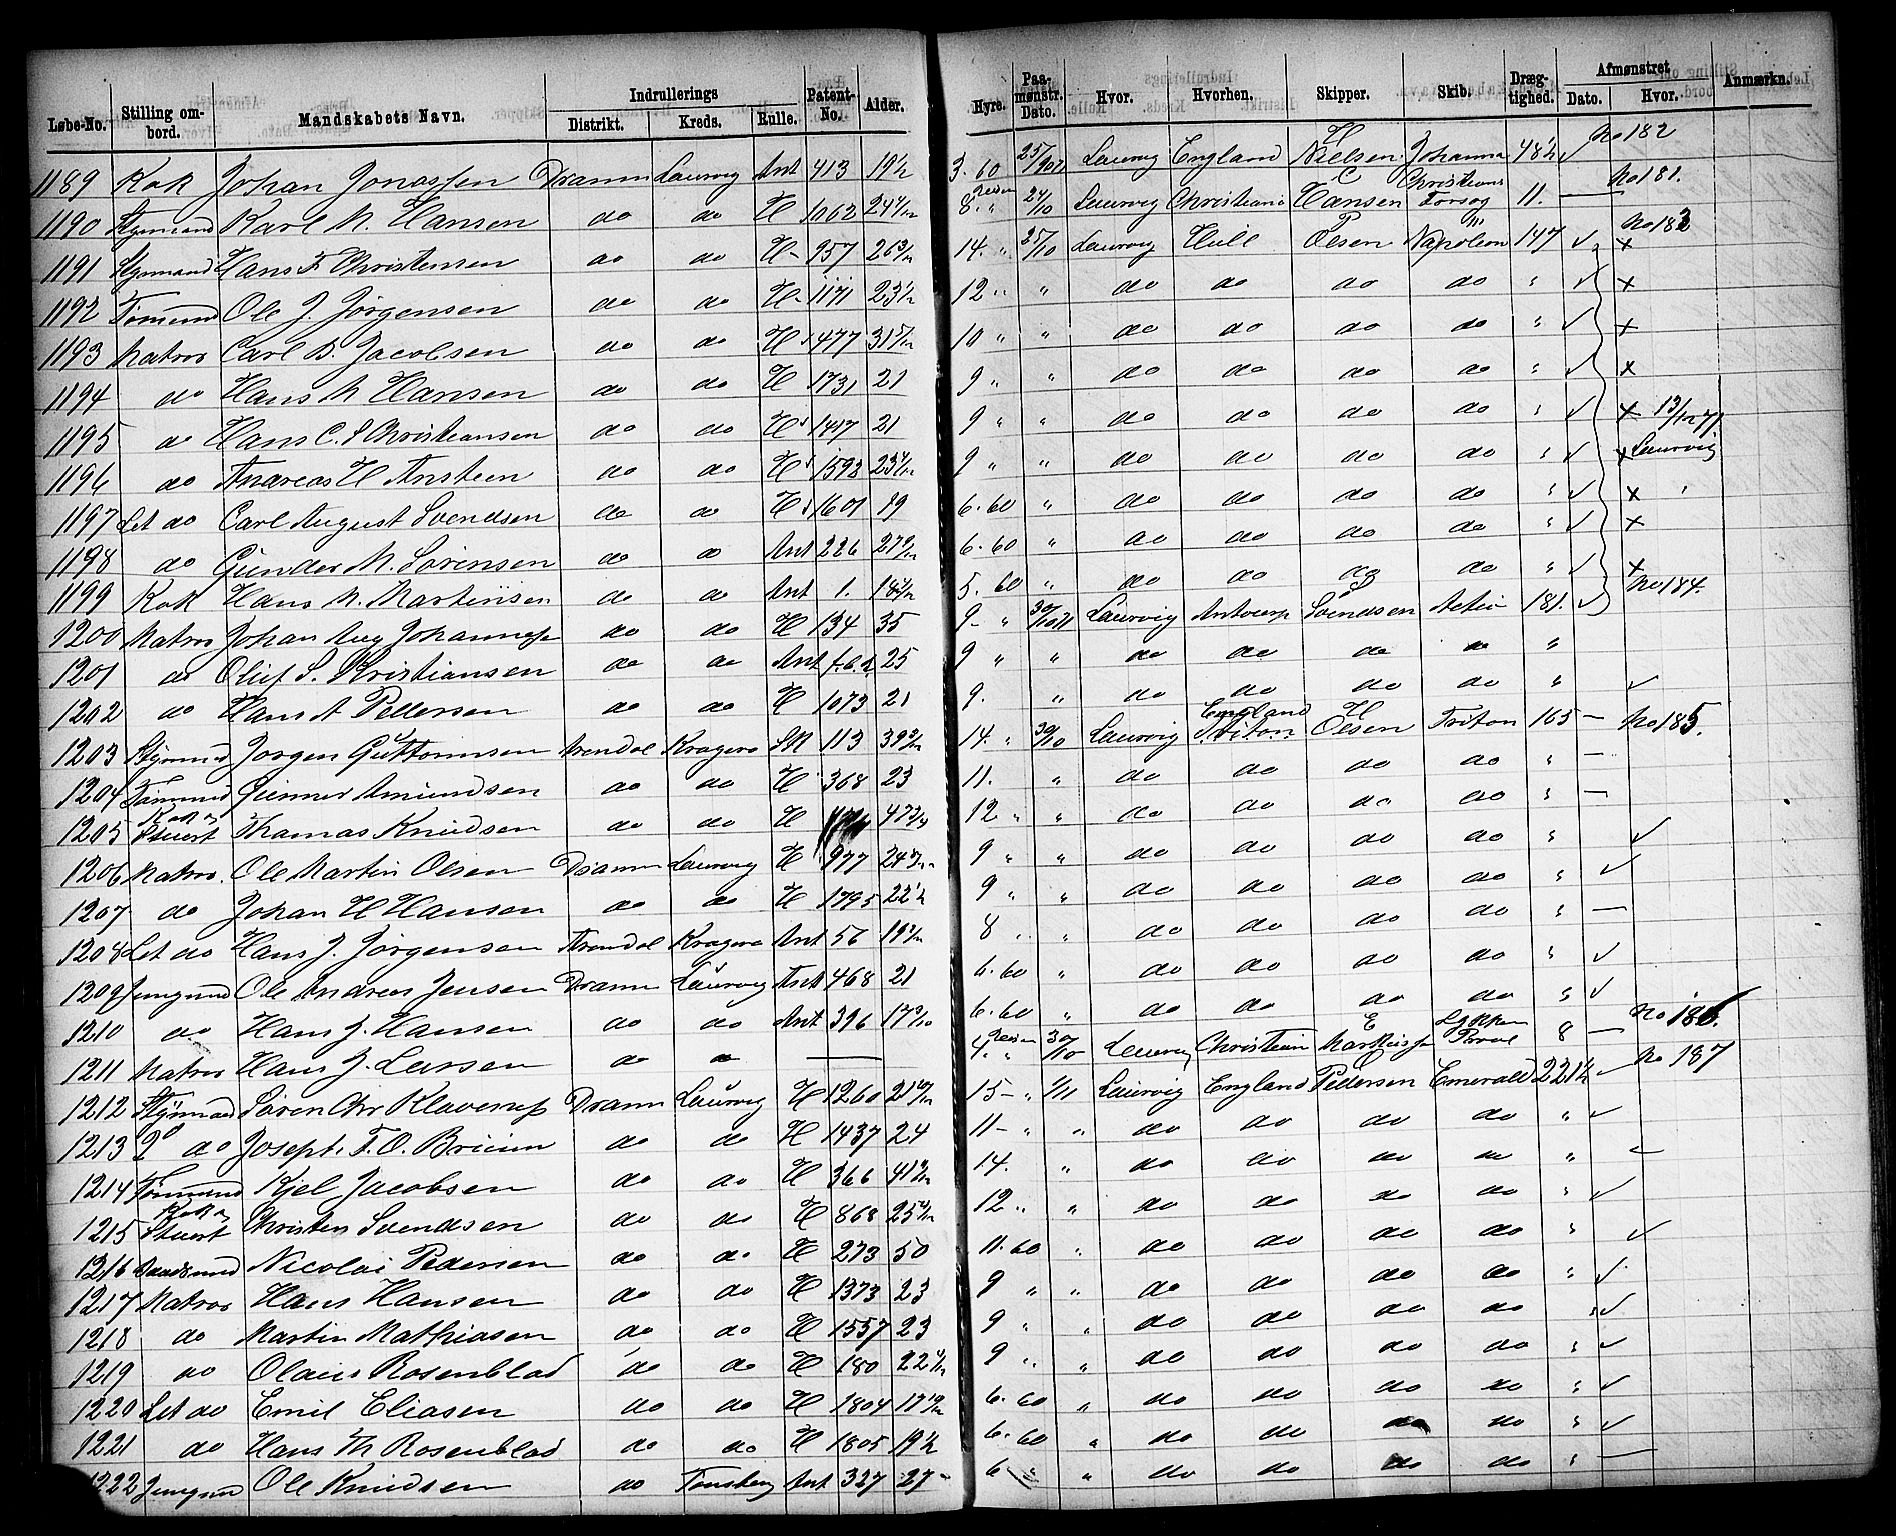 Løbe-No. Stilling ombord. Mandskabets Navn. Indrullerings Distrikt. Kreds. Rulle. Patent-No. Alder. Hyre. Paa-mønstr. Dato. Hvor. Hvorhen. Skipper. Skib. Dræg-tighed. Afmønstret Dato. Hvor. Anmærkn.
No 182
1189 Kok Johan Jonassen Dramm Laurvig Ant 413 19½ 3. 60 25/10 71 Laurvig England H Nielsen Johanna 48½ ✓
No 181.
1190 Styrmand Karl M. Hansen do do H 1062 8. " 24/10 Laurvig Christiania C Hansen Christians Forsøg 11. —
No 183
1191 Styrmand Hans F Christensen do do H 957 14. " 25/10 Laurvig Hull P Olsen Napoleon 147 ✓ ×
1192 Tømmd Ole J. Jørgensen do do H 1171 12 " " do do do do " ✓ ×
1193 Matros Carl B. Jacobsen do do H 477 10 " " do do do do " ✓ ×
1194 do Hans M Hansen do do H 1731 21 9 " " do do do do " ✓ ×
1195 do Hans C. S Christiansen do do H 1417 21 9 " " do do do do " ✓ × 13/12 71
1196 do Andreas H Ansteen do do H 1592 9 " " do do do do " ✓ × Laurvig
1197 Let do Carl August Svendsen do do H 1601 19 6. 60 " do do do do " ✓ ×
1198 do Gunder M. Sørensen do do Ant 226 6. 60 " do do do do " ✓ ×
1199 Kok Hans M. Martinsen do do Ant 1. 5. 60 " do do do do " ✓ ×
No 184.
1200 Matros Johan Aug Johanness do do H 134 35 9 - " 30/10 71 Laurvig Antwerp Svendsen Activ 181. ✓
1201 do Oluf S. Kristiansen do do Ant 25 9 " " do do do do "
1202 do Hans A Pettersen do do H 1073 21 9. " do do do do " ✓
1203 Styrmd Jørgen Guttormsen Arendal Kragerø SR 113 14. " 30/10 Laurvig England Triton H Olsen Triton 165 — No 185.
1204 Tømmd Gunner Amundsen do do H 368 23 11. " do do do do " —
1205 Kok & Stuert Thomas Knudsen do do H 12 " " do do do do " —
1206 Matros. Ole Martin Olsen Dramm Laurvig H 977 9 " " do do do do " ✓
1207 do Johan H Hansen do do H 1795 22½ 9 " " do do do do " ✓
1208 Let do Hans J. Jørgensen Arendal Kragerø Ant 56 8 " " do do do do " —
1209 Jungmd Ole Andreas Jensen Dramm Laurvig Ant 468 21 6. 60 " do do do do " ✓
1210 do Hans J. Hansen do do Ant 396 6. 60 " do do do do " ✓
No 186.
1211 Matros Hans J. Larsen do do — 4. " 30/10 Laurvig Christian E Markuss 8 —
No 187
1212 Styrmand Søren Chr Klavenes Dramm Laurvig H 1260 15 - " 1/11 Laurvig England O Pedersen Emerald 221½ ✓
1213 2 do Joseph F. O. Bruun do do H 1437 24 11 - " " do do do do " ✓
1214 Tømmand Kjel Jacobsen do do H 366 14. " do do do do " ✓
1215 Kok & Stuert Christen Svendsen do do H 868 12 " " do do do do " ✓
1216 Baadsmd Nicolai Pedersen do do H 273 50 11. 60 " do do do do " ✓
1217 Matros Hans Hansen do do H 1373 23 9 " " do do do do " ✓
1218 do Martin Mathiasen do do H 1557 23 9 " " do do do do " ✓
1219 do Olaus Rosenblad do do H 180 9 " " do do do do " ✓
1220 Let do Emil Eliasen do do H 1804 6. 60 " do do do do " ✓
1221 do Hans Th Rosenblad do do H 1805 19½ 6. 60 " do do do do " ✓
1222 Jungmd Ole Knudsen do Tønsberg Ant 327 27 6 " " do do do do " —